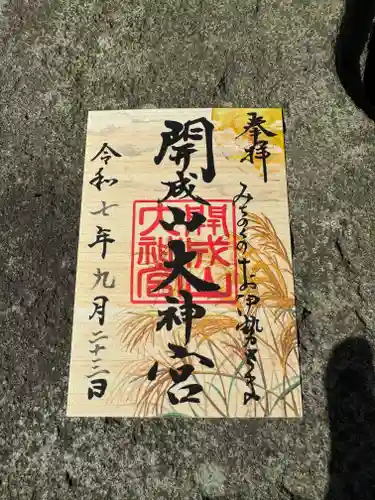 奉拝
みちのくのお伊勢さま
開成山大神宮
開成山大神宮
令和七年九月二十三日